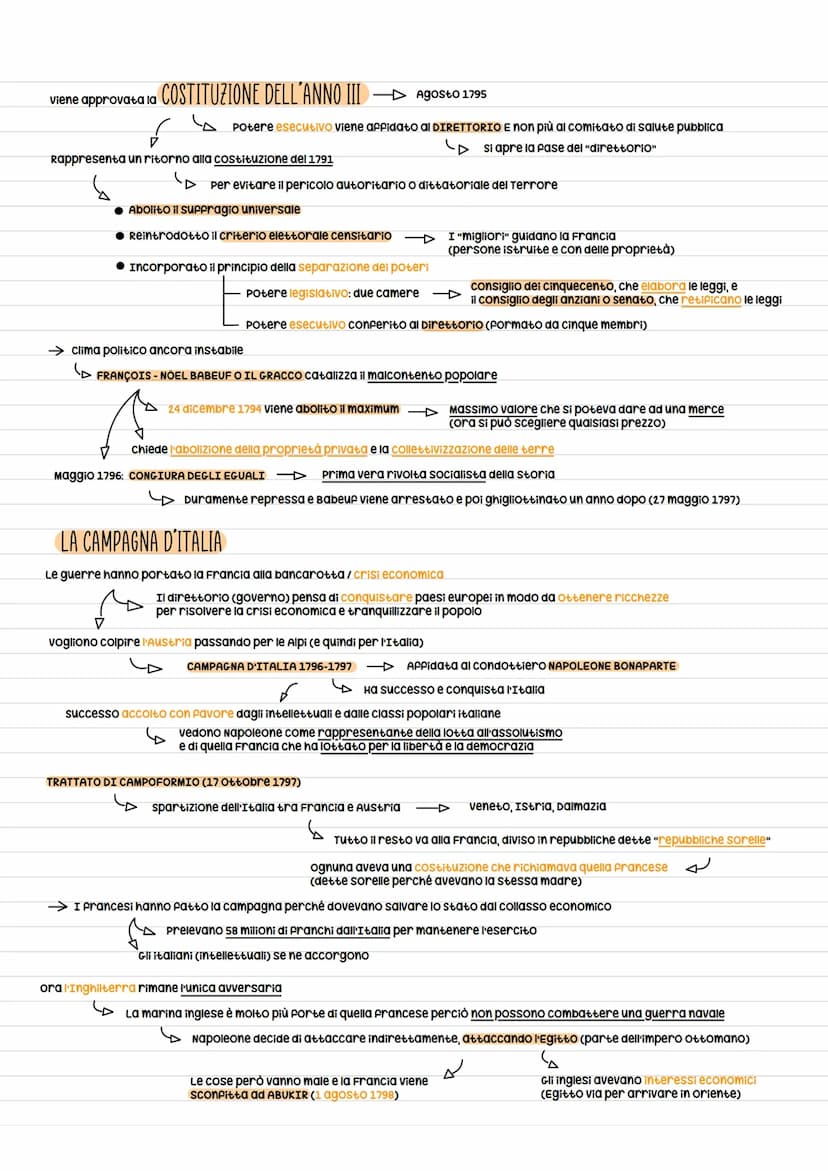 viene approvata la COSTITUZIONE DELL'ANNO III → Agosto 1795
Potere esecutivo viene affidato al DIRETTORIO E non più al comitato di salute pubblica
Si apre la fase del "direttorio"
Rappresenta un ritorno alla costituzione del 1791
Per evitare il pericolo autoritario o dittatoriale del Terrore
● Abolito il suffragio universale
● Reintrodotto il criterio elettorale censitario → I "migliori" guidano la Francia
(persone istruite e con delle proprietà)
● Incorporato il principio della separazione dei poteri
Potere legislativo: due camere → consiglio dei cinquecento, che elabora le leggi, e
il consiglio degli anziani o senato, che retificano le leggi
Potere esecutivo conferito al direttorio (formato da cinque membri)
→ clima politico ancora instabile
FRANÇOIS - NÖEL BABEUF O IL GRACCO catalizza il malcontento popolare
24 dicembre 1794 viene abolito il maximum → Massimo valore che si poteva dare ad una merce
(ora si può scegliere qualsiasi prezzo)
chiede l'abolizione della proprietà privata e la collettivizzazione delle terre
Maggio 1796: CONGIURA DEGLI EGUALI → Prima vera rivolta socialista della storia
Duramente repressa e Babeuf viene arrestato e poi ghigliottinato un anno dopo (27 maggio 1797)
LA CAMPAGNA D'ITALIA
Le guerre hanno portato la Francia alla bancarotta / crisi economica
Il direttorio (governo) pensa di conquistare paesi europei in modo da ottenere ricchezze
per risolvere la crisi economica e tranquillizzare il popolo
vogliono colpire l'Austria passando per le Alpi (e quindi per l'Italia)
CAMPAGNA D'ITALIA 1796-1797 → Affidata al condottiero NAPOLEONE BONAPARTE
Ha successo e conquista l'Italia
successo accolto con favore dagli intellettuali e dalle classi popolari italiane
vedono Napoleone come rappresentante della lotta all'assolutismo
e di quella Francia che ha lottato per la libertà e la democrazia
TRATTATO DI CAMPOFORMIO (17 Ottobre 1797)
spartizione dell'Italia tra Francia e Austria → Veneto, Istria, Dalmazia
Tutto il resto va alla Francia, diviso in repubbliche dette "repubbliche sorelle"
ognuna aveva una costituzione che richiamava quella francese
(dette sorelle perché avevano la stessa madre)
→ I francesi hanno fatto la campagna perché dovevano salvare lo stato dal collasso economico
Prelevano 58 milioni di franchi dall'Italia per mantenere l'esercito
Gli italiani (intellettuali) se ne accorgono
ora l'Inghilterra rimane l'unica avversaria
La marina inglese è molto più forte di quella francese perciò non possono combattere una guerra navale
Napoleone decide di attaccare indirettamente, attaccando l'Egitto (parte dell'impero ottomano)
Le cose però vanno male e la Francia viene
sconfitta ad ABUKIR (1 agosto 1798)
Gli inglesi avevano interessi economici
(Egitto via per arrivare in oriente)